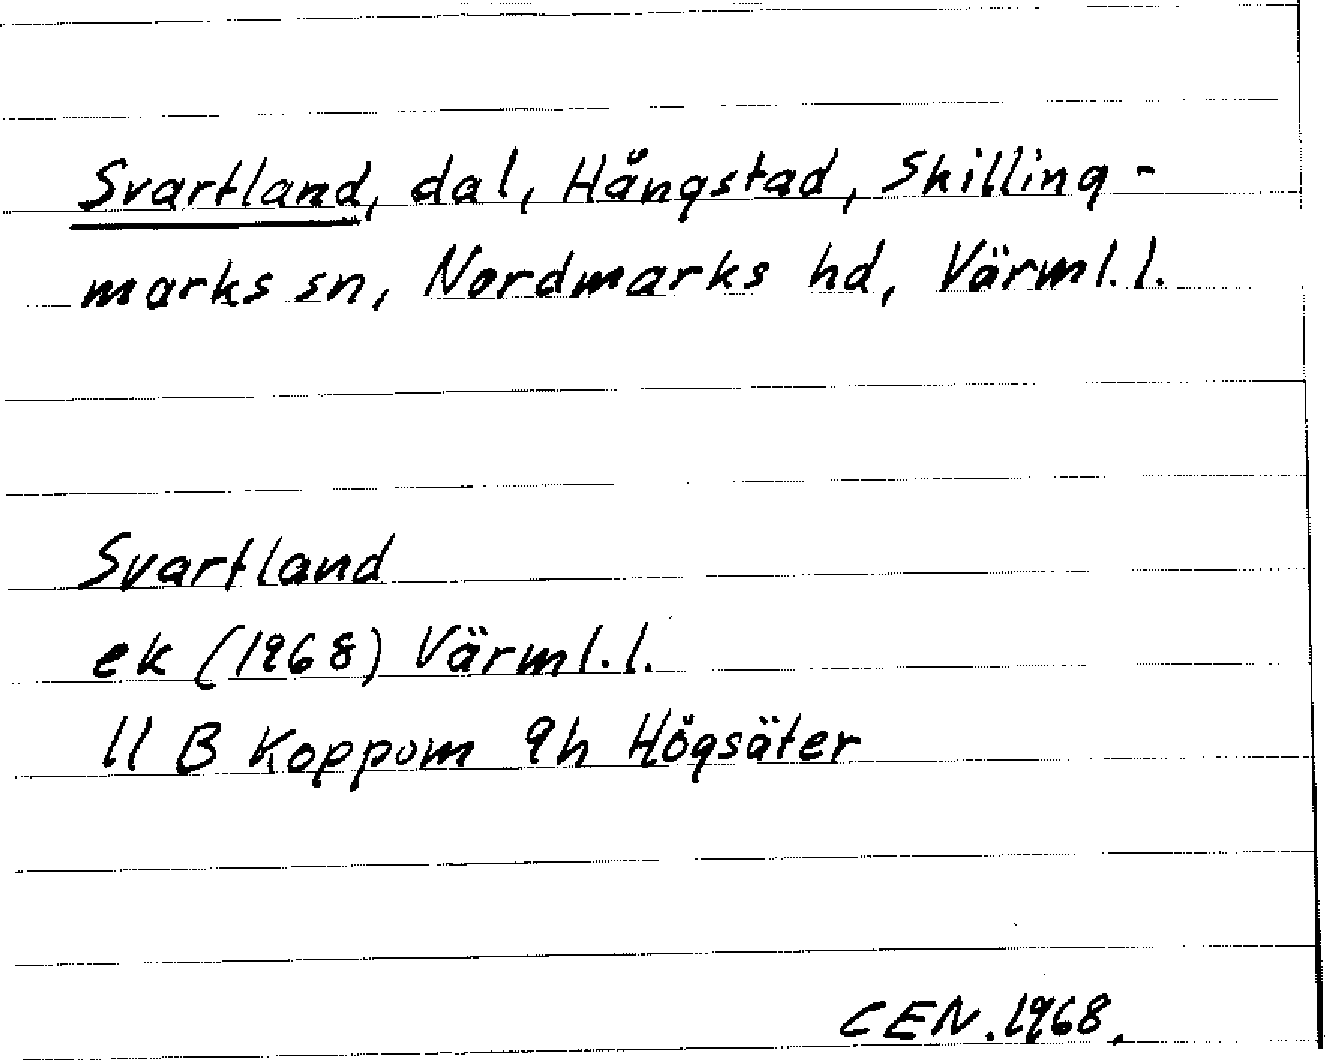 Svartland, dal, Hångstad, Skilling-
marks sn, Nordmarks hd, Värml.l.
Svartland
ek (1968) Värml.l.
11 B Koppom 9h Högsäter
CEN.1968.